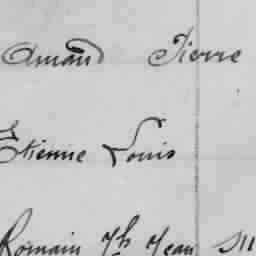 Amand Pierre
Etienne Louis
Romain Jh Jean